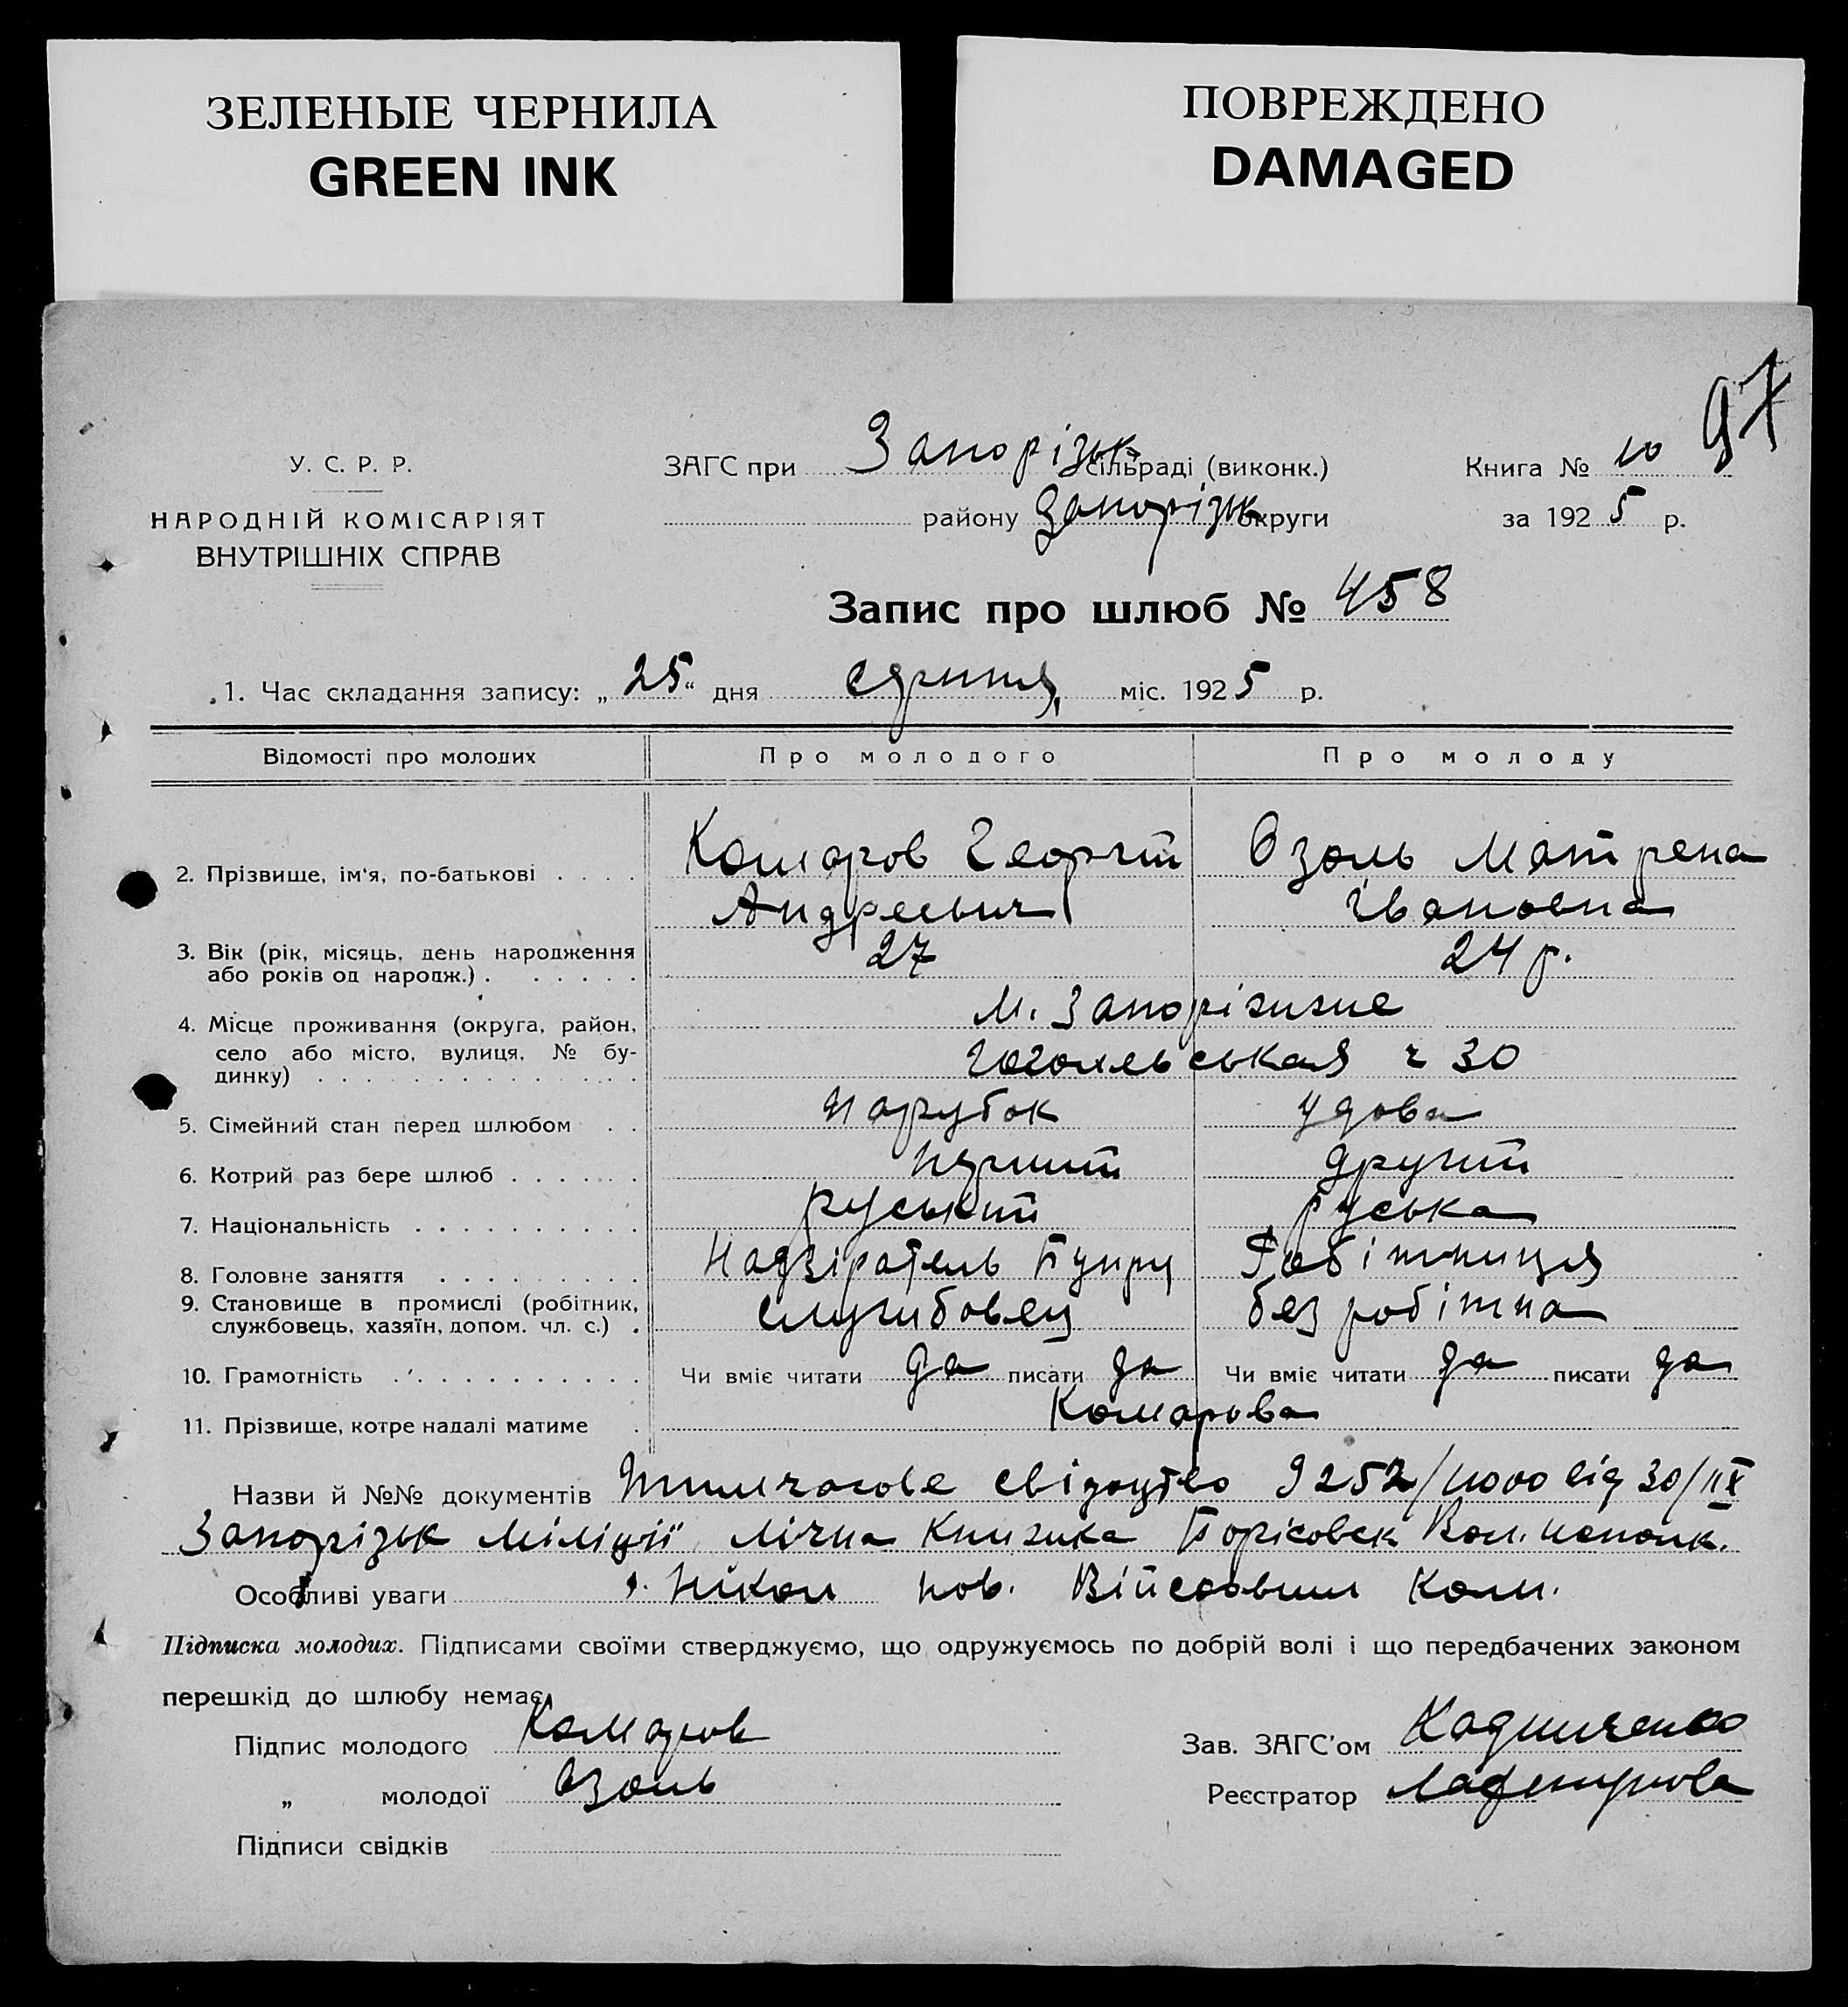 ЗЕЛЕНЫЕ ЧЕРНИЛА
GREEN INK
ПОВРЕЖДЕНО
DAMAGED
97
У. С. Р. Р.
НАРОДНІЙ КОМІСАРІЯТ
ВНУТРІШНІХ СПРАВ
ЗАГС при Запорізьк сільраді (виконк.)
району Запорізьк округи
Книга № 10
за 1925 р.
Запис про шлюб № 458
1. Час складання запису: „25“ дня серпня міс. 1925 р.
Відомості про молодих Про молодого Про молоду
2. Прізвище, ім'я, по-батькові . . . . Комаров Георгій Озоль Матрена
Андреевич Івановна
3. Вік (рік, місяць, день народження
або років од народж.) . . . . . . 27 24 р.
4. Місце проживання (округа, район, М. Запоріжжє
село або місто, вулиця, № бу-
динку) . . . . . . . . . . . . Гоголевськая ч 30
5. Сімейний стан перед шлюбом . . Парубок Удова
6. Котрий раз бере шлюб . . . . . . Перший другий
7. Національність . . . . . . . . . . руський руська
8. Головне заняття . . . . . . . . . Надзіратель Бупру Робітниця
9. Становище в промислі (робітник,
службовець, хазяїн, допом. чл. с.) . службовец безробітна
10. Грамотність . . . . . . . . . . . Чи вміє читати да писати да Чи вміє читати да писати да
11. Прізвище, котре надалі матиме . Комарова
Назви й №№ документів Тимчасове свідоцтво 9252/11000 від 30/IX
Запорізьк Міліції лічна Книжка Борісовск Вол.
Особливі уваги Нікол пов. Військовим Ком.
Підписка молодих. Підписами своїми стверджуємо, що одружуємось по добрій волі і що передбачених законом
перешкід до шлюбу немає.
Підпис молодого Комаров
„ молодої Озоль
Підписи свідків
Зав. ЗАГС'ом
Реєстратор